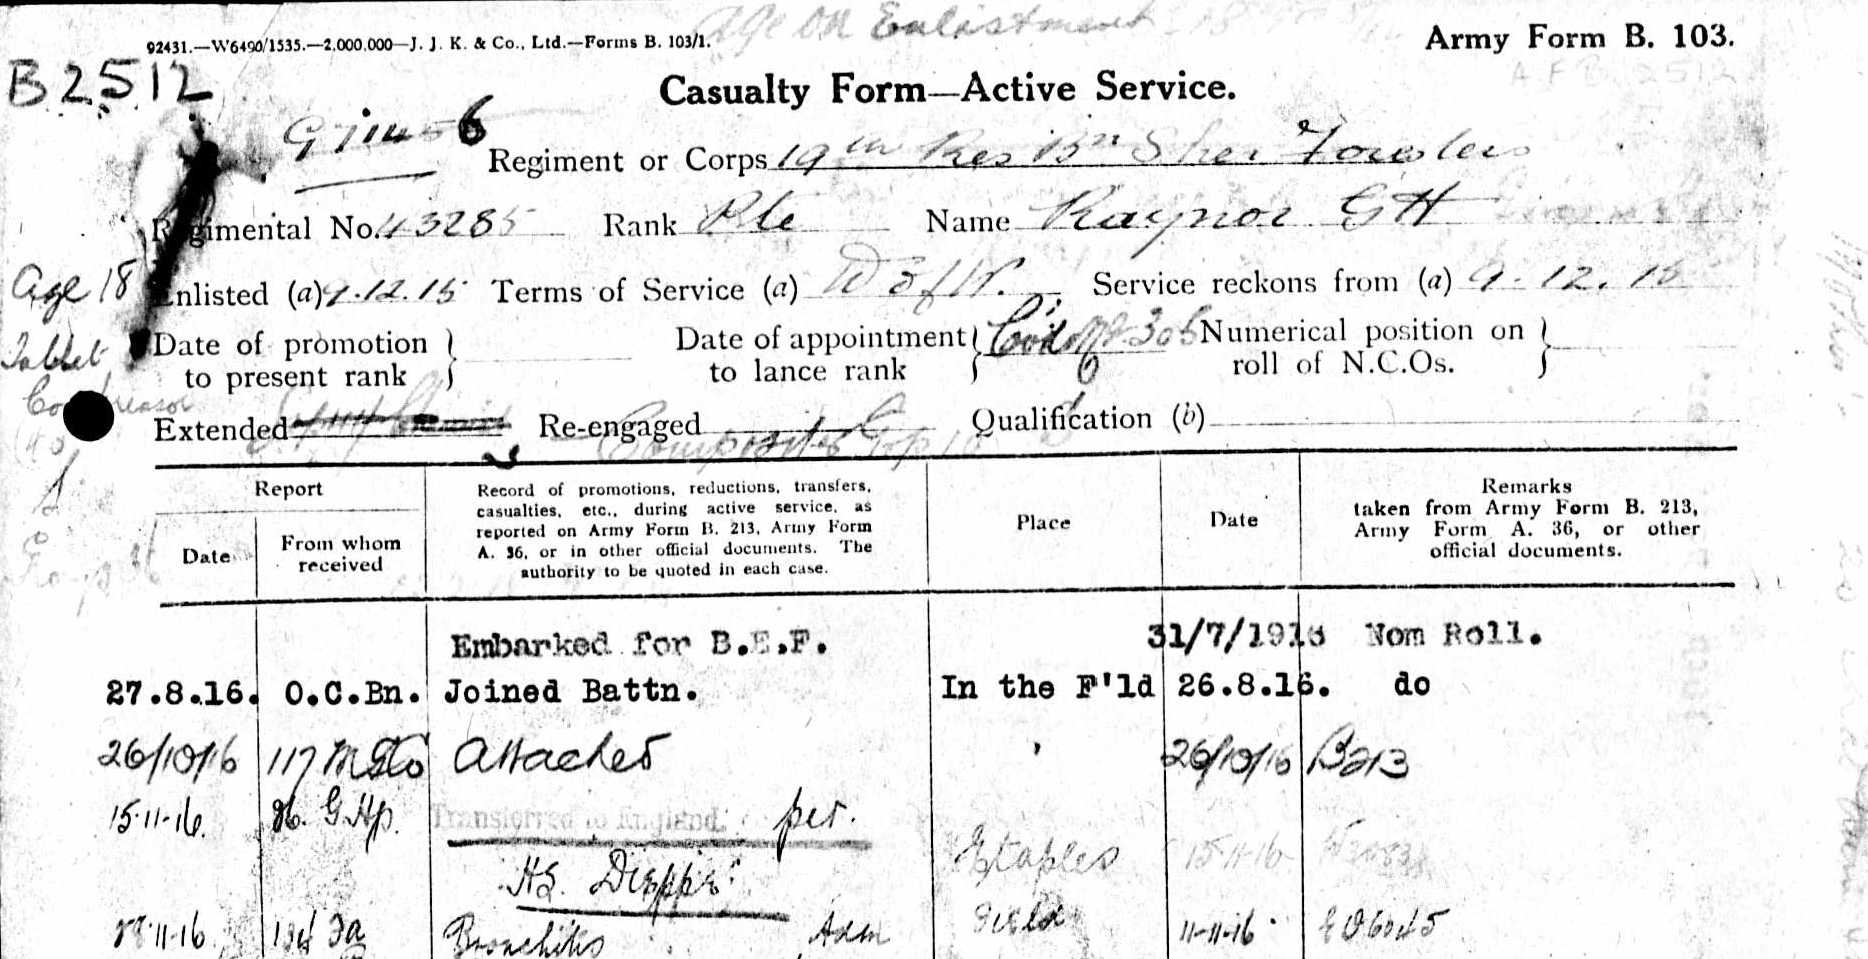 Age on Enlistment 18
92431.—W6490/1535.—2,000,000—J. J. K. & Co., Ltd.—Forms B. 103/1.
Army Form B. 103.
B 2512
AFB 2512
Casualty Form—Active Service.
G/11456
Regiment or Corps 19th Res Bn Sher Foresters
Regimental No. 43285 Rank Pte Name Raynor G H
Age 18
Enlisted (a) 9.12.15 Terms of Service (a) D of W. Service reckons from (a) 9.12.15
Date of promotion to present rank
Date of appointment to lance rank
Numerical position on roll of N.C.Os.
Extended Re-engaged Qualification (b)
Report
Date
From whom received
Record of promotions, reductions, transfers,
casualties, etc., during active service, as
reported on Army Form B. 213, Army Form
A. 36, or in other official documents. The
authority to be quoted in each case.
Place
Date
Remarks
taken from Army Form B. 213,
Army Form A. 36, or other
official documents.
Embarked for B.E.F. 31/7/1916 Nom Roll.
27.8.16. O.C.Bn. Joined Battn. In the F'ld 26.8.16. do
26/10/16 117 M G Co Attached 26/10/16 B213
15.11.16. 26. G. Hp. Transferred to England. per.
Etaples 15.11.16
HS. Dieppe.
Bronchitis Adm Field 11.11.16